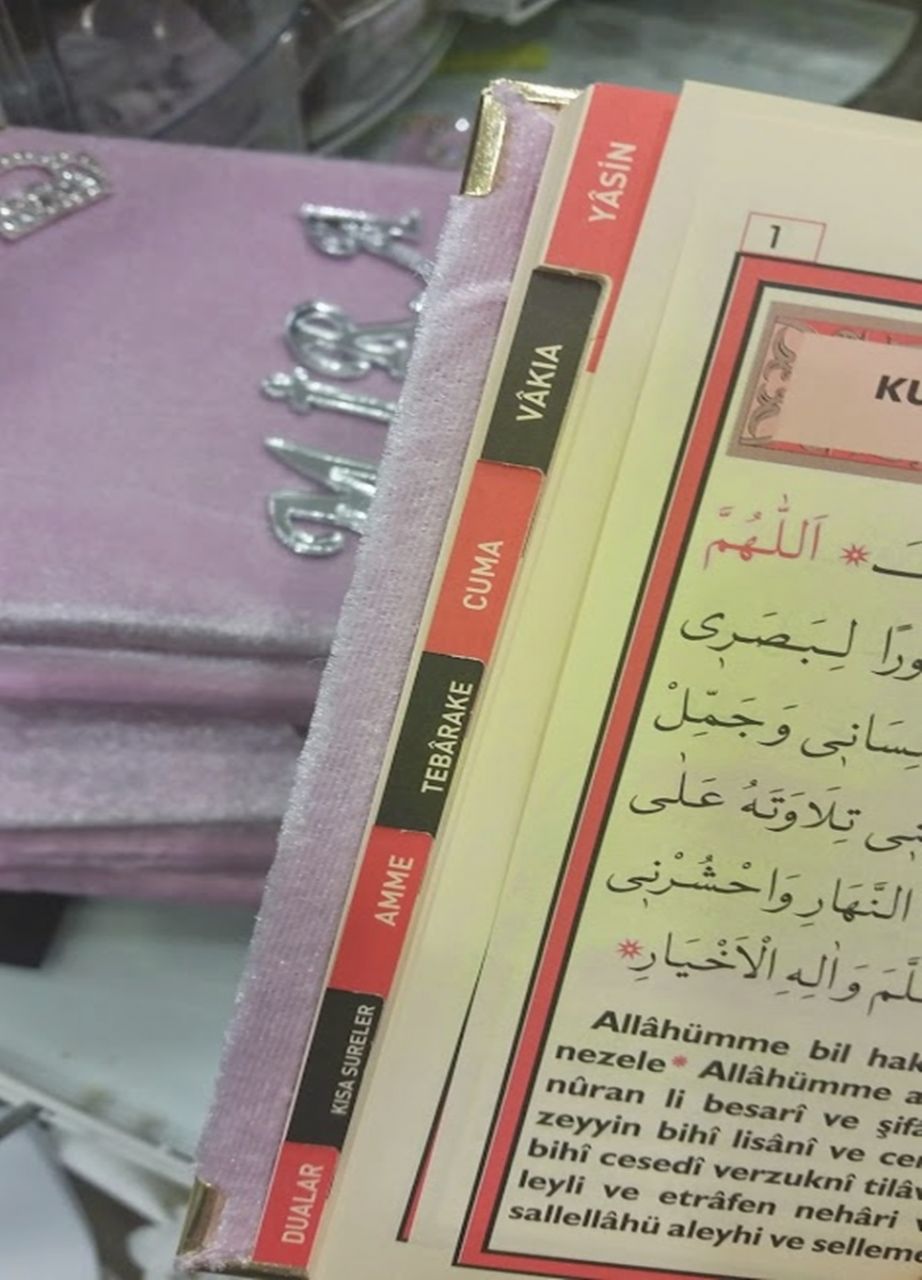 YÂSİN
VÂKIA
CUMA
TEBÂRAKE
AMME
KISA SURELER
DUALAR
1
KU
اَللّٰهُمَّ
ورًا لِبَصَرٖى
وَجَمِّلْ
تِلَاوَتَهُ عَلٰى
النَّهَارِ وَاحْشُرْنٖى
وَاٰلِهِ الْاَخْيَارِ
Allâhümme bil hak
nezele * Allâhümme a
nûran li besarî ve şifâ
zeyyin bihî lisânî ve cer
bihî cesedî verzuknî tilâv
leyli ve etrâfen nehâri v
sallellâhü aleyhi ve selleme